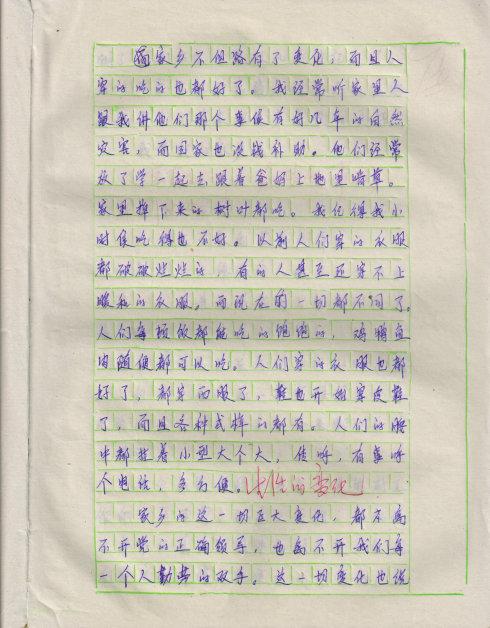 家乡不但路有了变化，而且人
穿的吃的也都好了。我经常听家里人
跟我讲他们那个年候有好几年的自然
灾害，而国家也没钱补助。他们经常
放了学一起去跟着爸妈上地里啃草。
家里掉下来的树叶都吃。我记得我小
时侯吃得也不好。以前人们穿的衣服
都破破烂烂的，有的人甚至还穿不上
暖和的衣服。而现在的一切都不同了。
人们每顿饭都能吃的饱饱的，鸡鸭鱼
肉随便都可以吃。人们穿的衣服也都
好了，都穿西服了，鞋也开始穿皮鞋
了，而且各种式样的都有。人们的腰
中都挂着小型大个大，传呼，有事呼
个电话，多方便。
家乡的这一切巨大变化，都永离
不开党的正确领导，也离不开我们每
一个人勤劳的双手。这一切变化也说